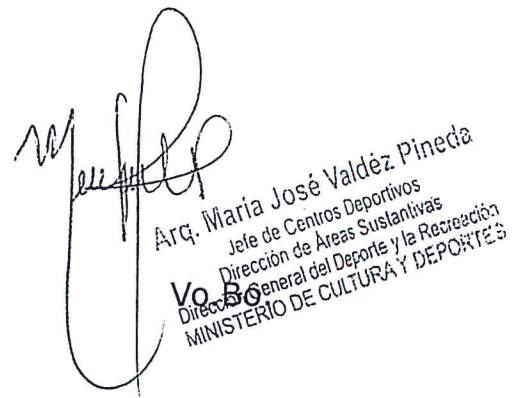 Arq. María José Valdéz Pineda
Jefe de Centros Deportivos
Dirección de Áreas Sustantivas
Dirección General del Deporte y la Recreación
MINISTERIO DE CULTURA Y DEPORTES
Vo.Bo.